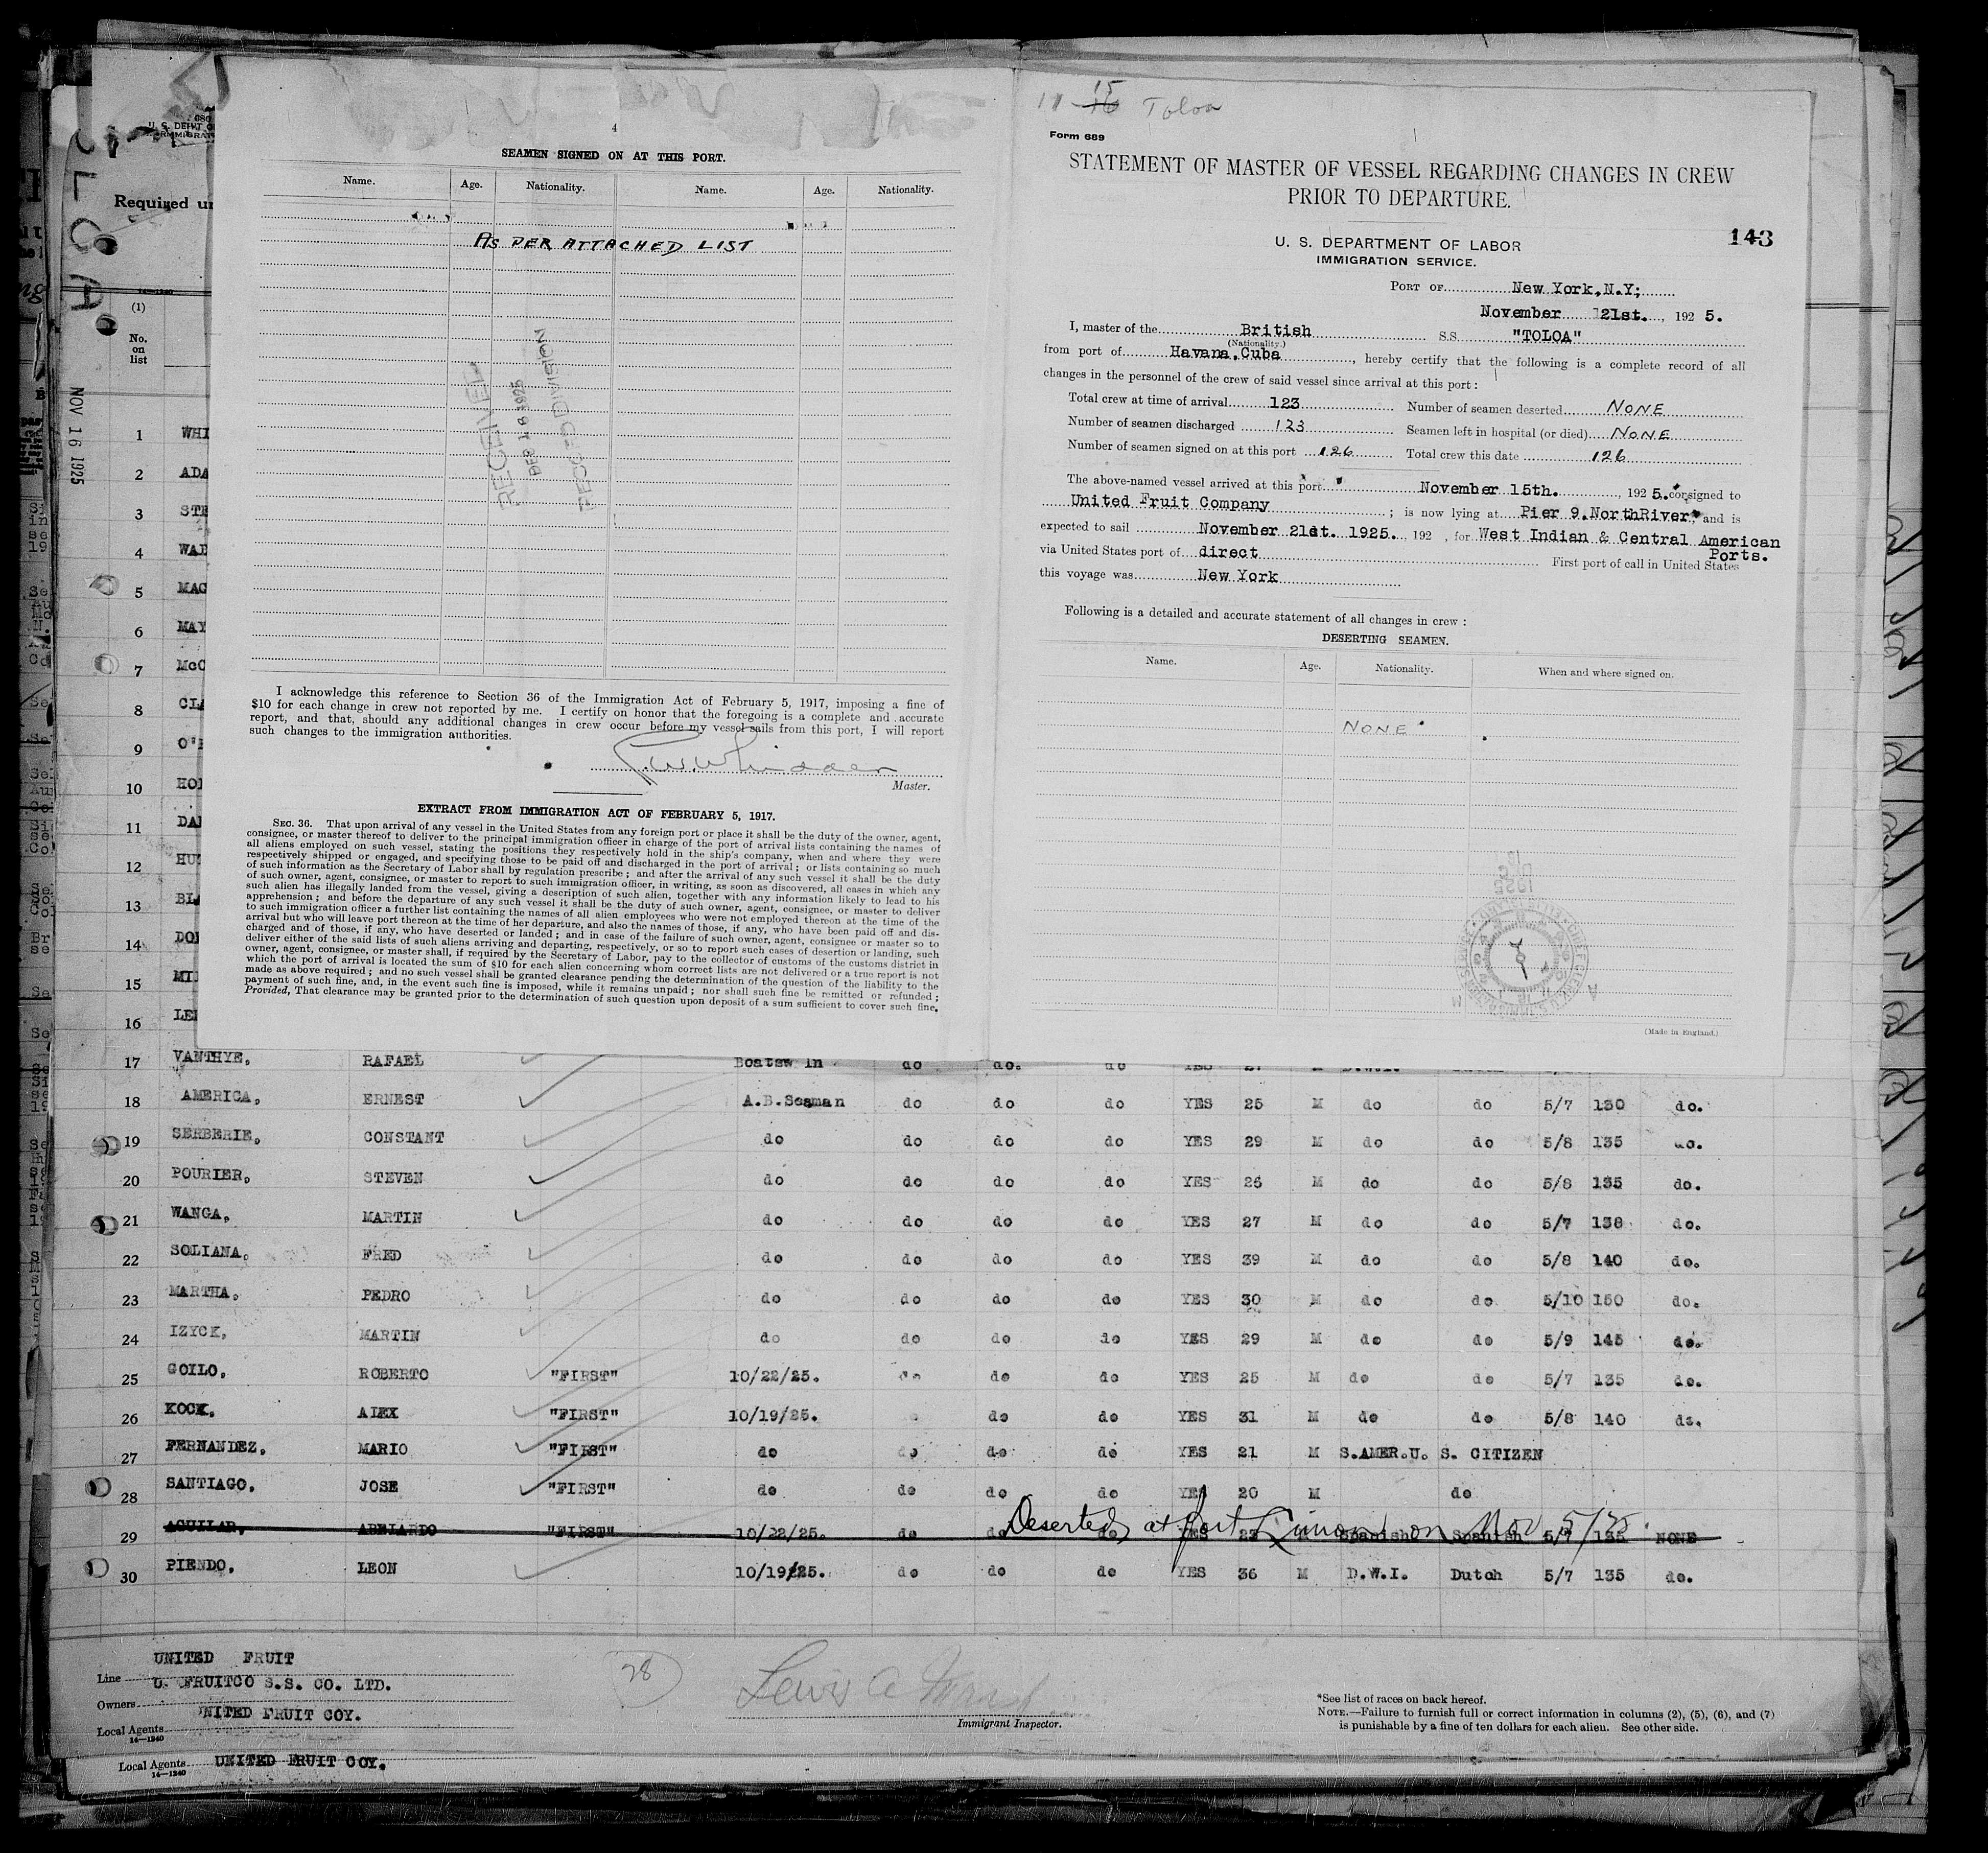 4
SEAMEN SIGNED ON AT THIS PORT.
Name. Age. Nationality. Name. Age. Nationality.
AS PER ATTACHED LIST
RECEIVED
DEC 18 1925
RECORD DIVISION
I acknowledge this reference to Section 36 of the Immigration Act of February 5, 1917, imposing a fine of
$10 for each change in crew not reported by me. I certify on honor that the foregoing is a complete and accurate
report, and that, should any additional changes in crew occur before my vessel sails from this port, I will report
such changes to the immigration authorities.
Master.
EXTRACT FROM IMMIGRATION ACT OF FEBRUARY 5, 1917.
SEC. 36. That upon arrival of any vessel in the United States from any foreign port or place it shall be the duty of the owner, agent,
consignee, or master thereof to deliver to the principal immigration officer in charge of the port of arrival lists containing the names of
all aliens employed on such vessel, stating the positions they respectively hold in the ship's company, when and where they were
respectively shipped or engaged, and specifying those to be paid off and discharged in the port of arrival; or lists containing so much
of such information as the Secretary of Labor shall by regulation prescribe; and after the arrival of any such vessel it shall be the duty
of such owner, agent, consignee, or master to report to such immigration officer, in writing, as soon as discovered, all cases in which any
such alien has illegally landed from the vessel, giving a description of such alien, together with any information likely to lead to his
apprehension; and before the departure of any such vessel it shall be the duty of such owner, agent, consignee, or master to deliver
to such immigration officer a further list containing the names of all alien employees who were not employed thereon at the time of the
arrival but who will leave port thereon at the time of her departure, and also the names of those, if any, who have been paid off and dis-
charged and of those, if any, who have deserted or landed; and in case of the failure of such owner, agent, consignee or master so to
deliver either of the said lists of such aliens arriving and departing, respectively, or so to report such cases of desertion or landing, such
owner, agent, consignee, or master shall, if required by the Secretary of Labor, pay to the collector of customs of the customs district in
which the port of arrival is located the sum of $10 for each alien concerning whom correct lists are not delivered or a true report is not
made as above required; and no such vessel shall be granted clearance pending the determination of the question of the liability to the
payment of such fine, and, in the event such fine is imposed, while it remains unpaid; nor shall such fine be remitted or refunded;
Provided, That clearance may be granted prior to the determination of such question upon deposit of a sum sufficient to cover such fine.
11 - 16 15 Toloa
Form 689
STATEMENT OF MASTER OF VESSEL REGARDING CHANGES IN CREW
PRIOR TO DEPARTURE.
143
U. S. DEPARTMENT OF LABOR
IMMIGRATION SERVICE.
PORT OF New York,N.Y;
November 21st. , 192 5.
I, master of the British S.S. "TOLOA"
(Nationality.)
from port of Havana,Cuba , hereby certify that the following is a complete record of all
changes in the personnel of the crew of said vessel since arrival at this port:
Total crew at time of arrival 123 Number of seamen deserted NONE
Number of seamen discharged 123 Seamen left in hospital (or died) NONE
Number of seamen signed on at this port 126 Total crew this date 126
The above-named vessel arrived at this port November 15th. , 192 5. consigned to
United Fruit Company ; is now lying at Pier 9.NorthRiver, and is
expected to sail November 21st. 1925. , 192 , for West Indian & Central American
Ports.
via United States port of direct First port of call in United States
this voyage was New York
Following is a detailed and accurate statement of all changes in crew:
DESERTING SEAMEN.
Name. Age. Nationality. When and where signed on.
NONE
(Made in England.)
Required un
NOV 16 1925
(1)
No.
on
list
1 WHI
2 ADA
3 STE
4
5 MAC
6 MAY
7 McC
8 CLA
9
10
11
12
13
14
15
16
17 VANTHYE, RAFAEL Boatswin do do. do YES
18 AMERICA, ERNEST A.B.Seaman do do do YES 25 M do do 5/7 130 do.
19 SERBERIE, CONSTANT do do do do YES 29 M do do 5/8 135 do.
20 POURIER, STEVEN do do do do YES 26 M do do 5/8 135 do.
21 WANGA, MARTIN do do do do YES 27 M do do 5/7 138 do.
22 SOLIANA, FRED do do do do YES 39 M do do 5/8 140 do.
23 MARTHA, PEDRO do do do do YES 30 M do do 5/10 150 do.
24 IZYCK, MARTIN do do do do YES 29 M do do 5/9 145 do.
25 GOILO, ROBERTO "FIRST" 10/22/25. do do do YES 25 M do do 5/7 135 do.
26 KOCK, ALEX "FIRST" 10/19/25. do do YES 31 M do do 5/8 140 do.
27 FERNANDEZ, MARIO "FIRST" do do do do YES 21 M S.AMER.U. S. CITIZEN
28 SANTIAGO, JOSE "FIRST" do do do do YES 20 M do
Deserted at Port Limon on Nov 5/25.
29 AGUILAR, ABELARDO "FIRST" 10/22/25. do do do YES 23 M Spanish Spanish 5/7 135 NONE
30 PIENDO, LEON 10/19/25. do do do YES 36 M D.W.I. Dutch 5/7 135 do.
Line UNITED FRUIT
Owners U. FRUITCO S.S. CO. LTD.
Local Agents UNITED FRUIT COY.
14—1240
28
Immigrant Inspector.
*See list of races on back hereof.
NOTE.—Failure to furnish full or correct information in columns (2), (5), (6), and (7)
is punishable by a fine of ten dollars for each alien. See other side.
Local Agents UNITED FRUIT COY.
14—1240